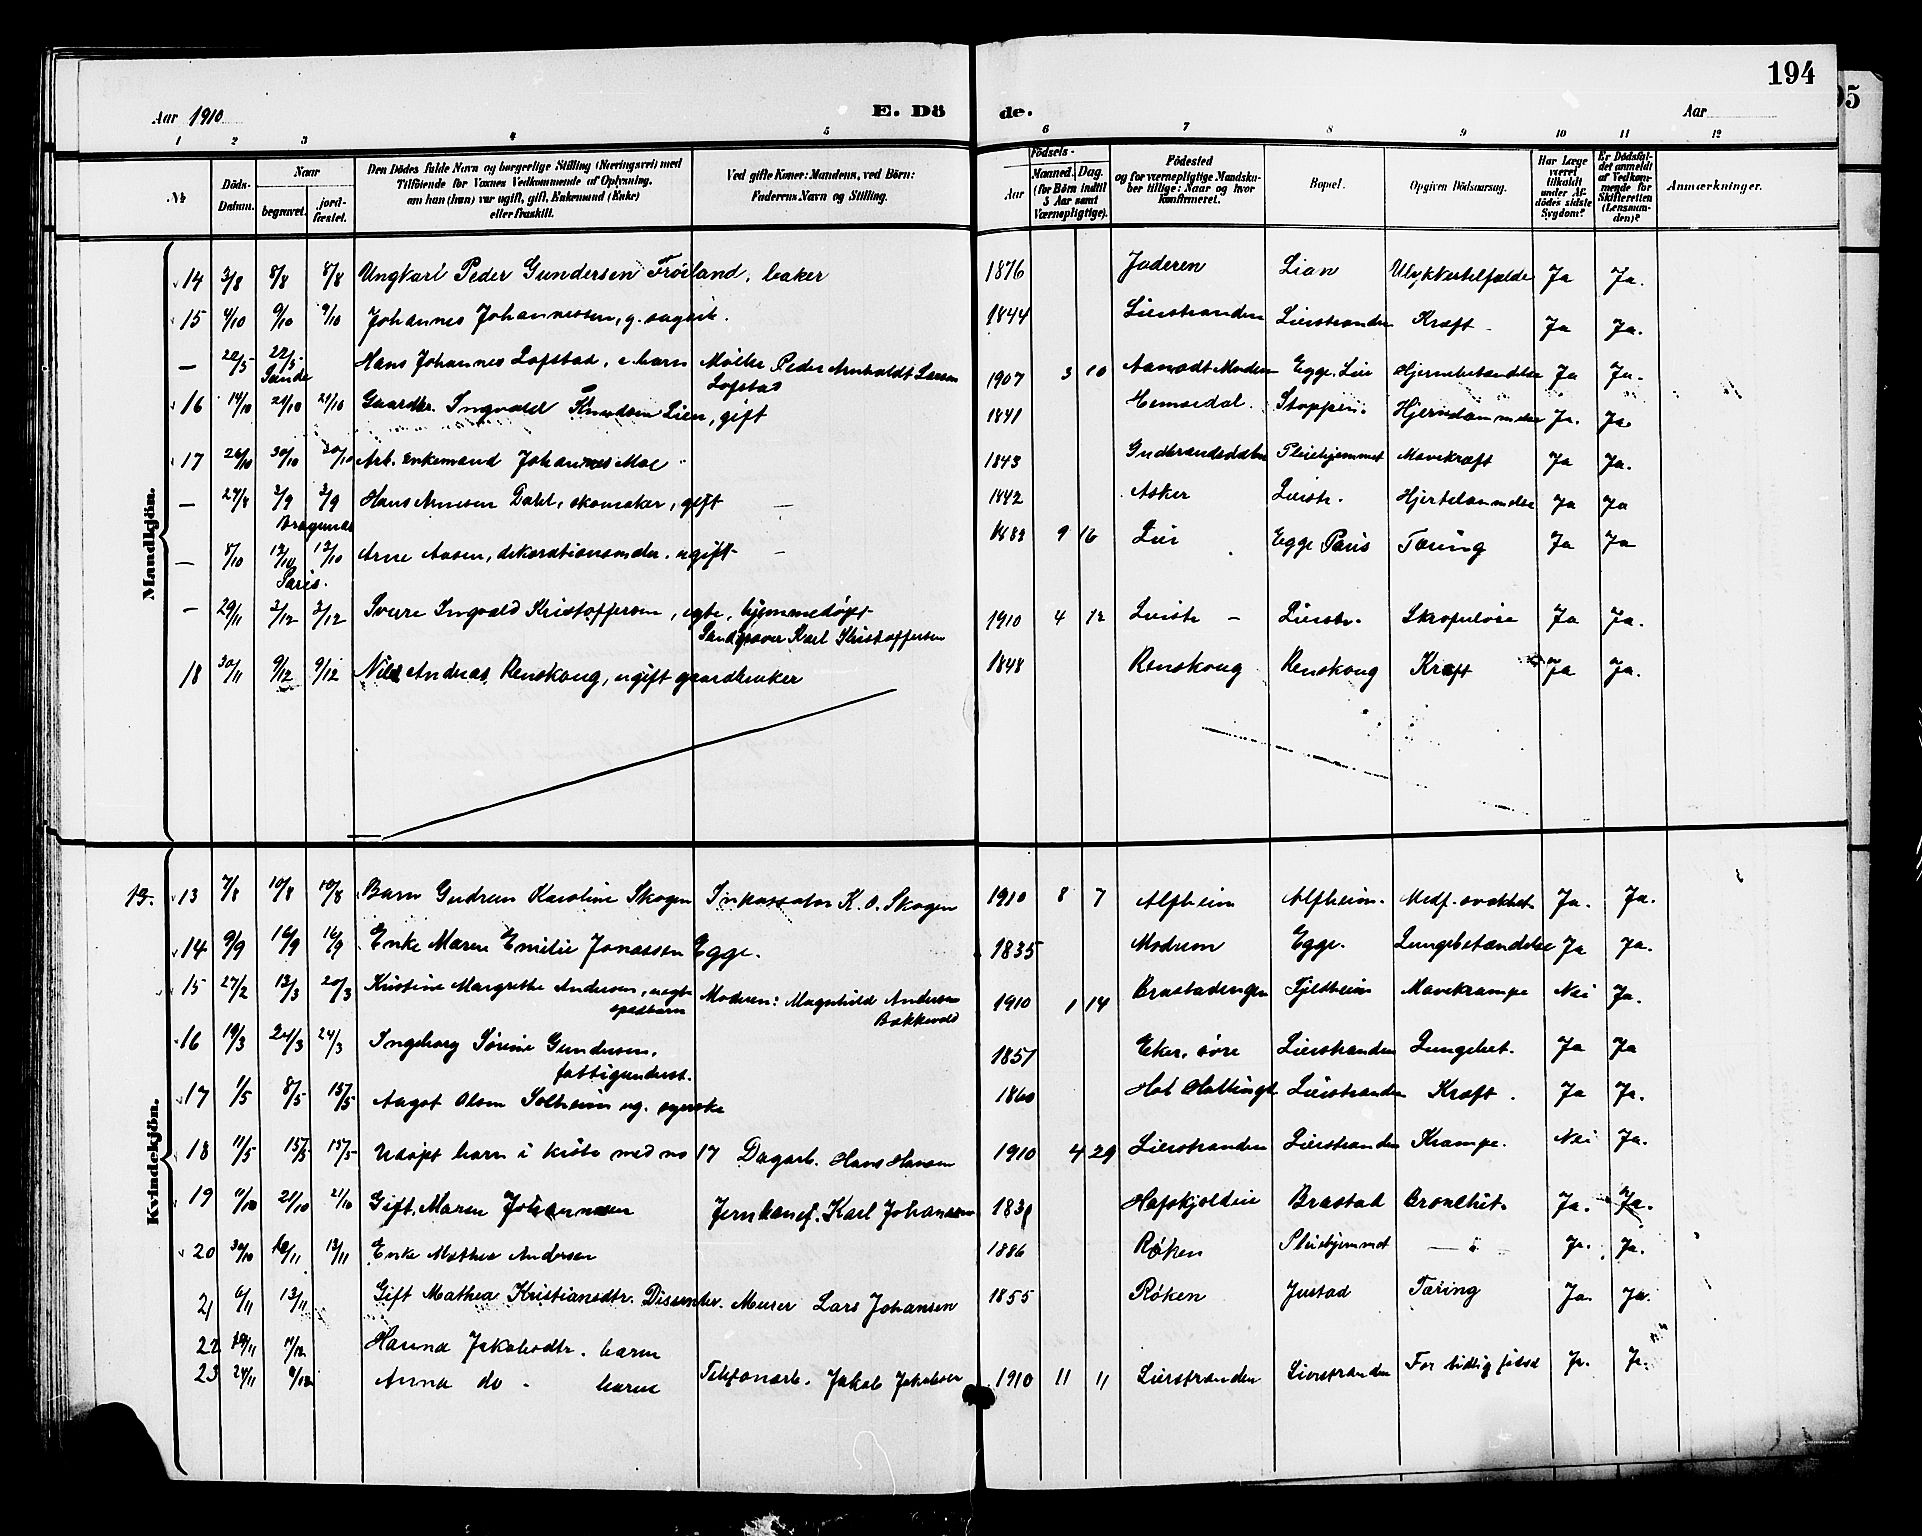 194
95
Aar 1910 E. Dö de. Aar
1 2 3 4 5 6 7 8 9 10 11 12
№ Döds-Datum. Naar begravet. jordfæstet. Den Dödes fulde Navn og borgerlige Stilling (Næringsvei) med Tilföiende for Voxnes Vedkommende af Oplysning, om han (hun) var ugift, gift, Enkemand (Enke) eller fraskilt. Ved gifte Koner: Mandens, ved Börn: Faderens Navn og Stilling. Födsels- Aar Maaned. Dag. (for Börn indtil 5 Aar samt Værnepligtige). Födested og for værnepligtige Mandskaber tillige: Naar og hvor konfirmeret. Bopæl. Opgiven Dödsaarsag. Har Læge været tilkaldt under Afdödes sidste Sygdom? Er Dödsfaldet anmeldt af Vedkommende for Skifteretten (Lensmanden)? Anmærkninger.
Mandkjön.
14 3/8 8/8 8/8 Ungkarl Peder Gundersen Fröiland, baker 1876 Jaderen Lian Ulykkestilfælde Ja Ja.
15 4/10 9/10 9/10 Johannes Johannessen, g. sagarb. 1844 Lierstranden Lierstranden Kræft Ja Ja.
— 22/5 22/5 Sande Hans Johannes Lofstad, e. barn Møller Peder Arnholdt Larsen Lofstad 1907 3 10 Aamodt Modum Egge. Lier Hjernebetændelse Ja Ja.
16 19/10 29/10 29/10 Gaardbr. Ingvald Knudsen Lien, gift 1841 Hemsedal. Stoppen. Hjerneslammelse Ja. Ja.
17 26/10 30/10 30/10 Arb. enkemand Johannes Moe 1843 Gudbrandsdalen Pleiehjemmet Mavekræft Ja Ja.
— 27/8 2/9 2/9 Bragernes Hans Arnesen Dahl, skomaker, gift — 1842 Asker Lierstr. Hjertelammelse Ja Ja
— 8/10 12/10 12/10 Paris. Arne Aasen, dekorationsmaler. ugift — 1883 9 16 Lier Egge Paris Tæring Ja Ja
— 29/11 2/12 2/12 Sverre Ingvald Kristoffersen, egte, hjemmedøpt Sandgraver Karl Kristoffersen 1910 4 12 Lierstr — Lierstr. Skrofuløse Ja Ja.
18 30/11 9/12 9/12 Nils Andreas Renskoug, ugift gaardbruker 1848 Renskoug Renskoug Kræft Ja Ja.
Kvindekjön.
13. 13 7/8 10/8 10/8 Barn Gudrun Karoline Skogen Inkassator K. O. Skogen 1910 8 7 Alfheim Alfheim. Medf. svakhet Ja. Ja.
14 9/9 16/9 16/9 Enke Maren Emilie Jonassen Egge. 1835 Modum Egge. Lungebetændelse Ja Ja.
15 27/2 13/3 20/3 Kristine Margrethe Andersen, uegte spædbarn Moderen: Magnhild Andersen Bakkevold 1910 1 14 Brastadengen Fjeldheim Mavekrampe Nei Ja.
16 19/3 24/3 24/3 Ingeborg Sørine Gundersen, fattigunderst. 1851 Eker, søre Lierstranden Lungebet. Ja Ja
17 1/5 8/5 15/5 Aagot Olsen Solheim ug. syerske 1860 Hol Hallingd. Lierstranden Kræft. Ja Ja.
18 11/5 15/5 15/5 Udøpt barn i kiste med no 17 Dagarb. Hans Hansen 1910 4 29 Lierstranden Lierstranden Krampe. Nei Ja.
19 11/10 21/10 21/10 Gift. Maren Johannesen Jernbanef. Karl Johansen Hafskjoldeie Brastad Bronchit. Ja. Ja.
20 30/10 13/11 Enke Mathea Andersen 1886 Røken Pleiehjemmet — " — Ja. Ja.
21 6/11 13/11 Gift Mathea Kristiansdtr. Dissenter. Murer Lars Johansen 1855 Røken Justad Tæring Ja. Ja.
22 11/12 Hanna Jakobsdtr. barn
23 24/11 Anna do - barn Telefonarb. Jakob Jakobsen 1910 11 11 Lierstranden Lierstranden For tidlig født Ja. Ja.